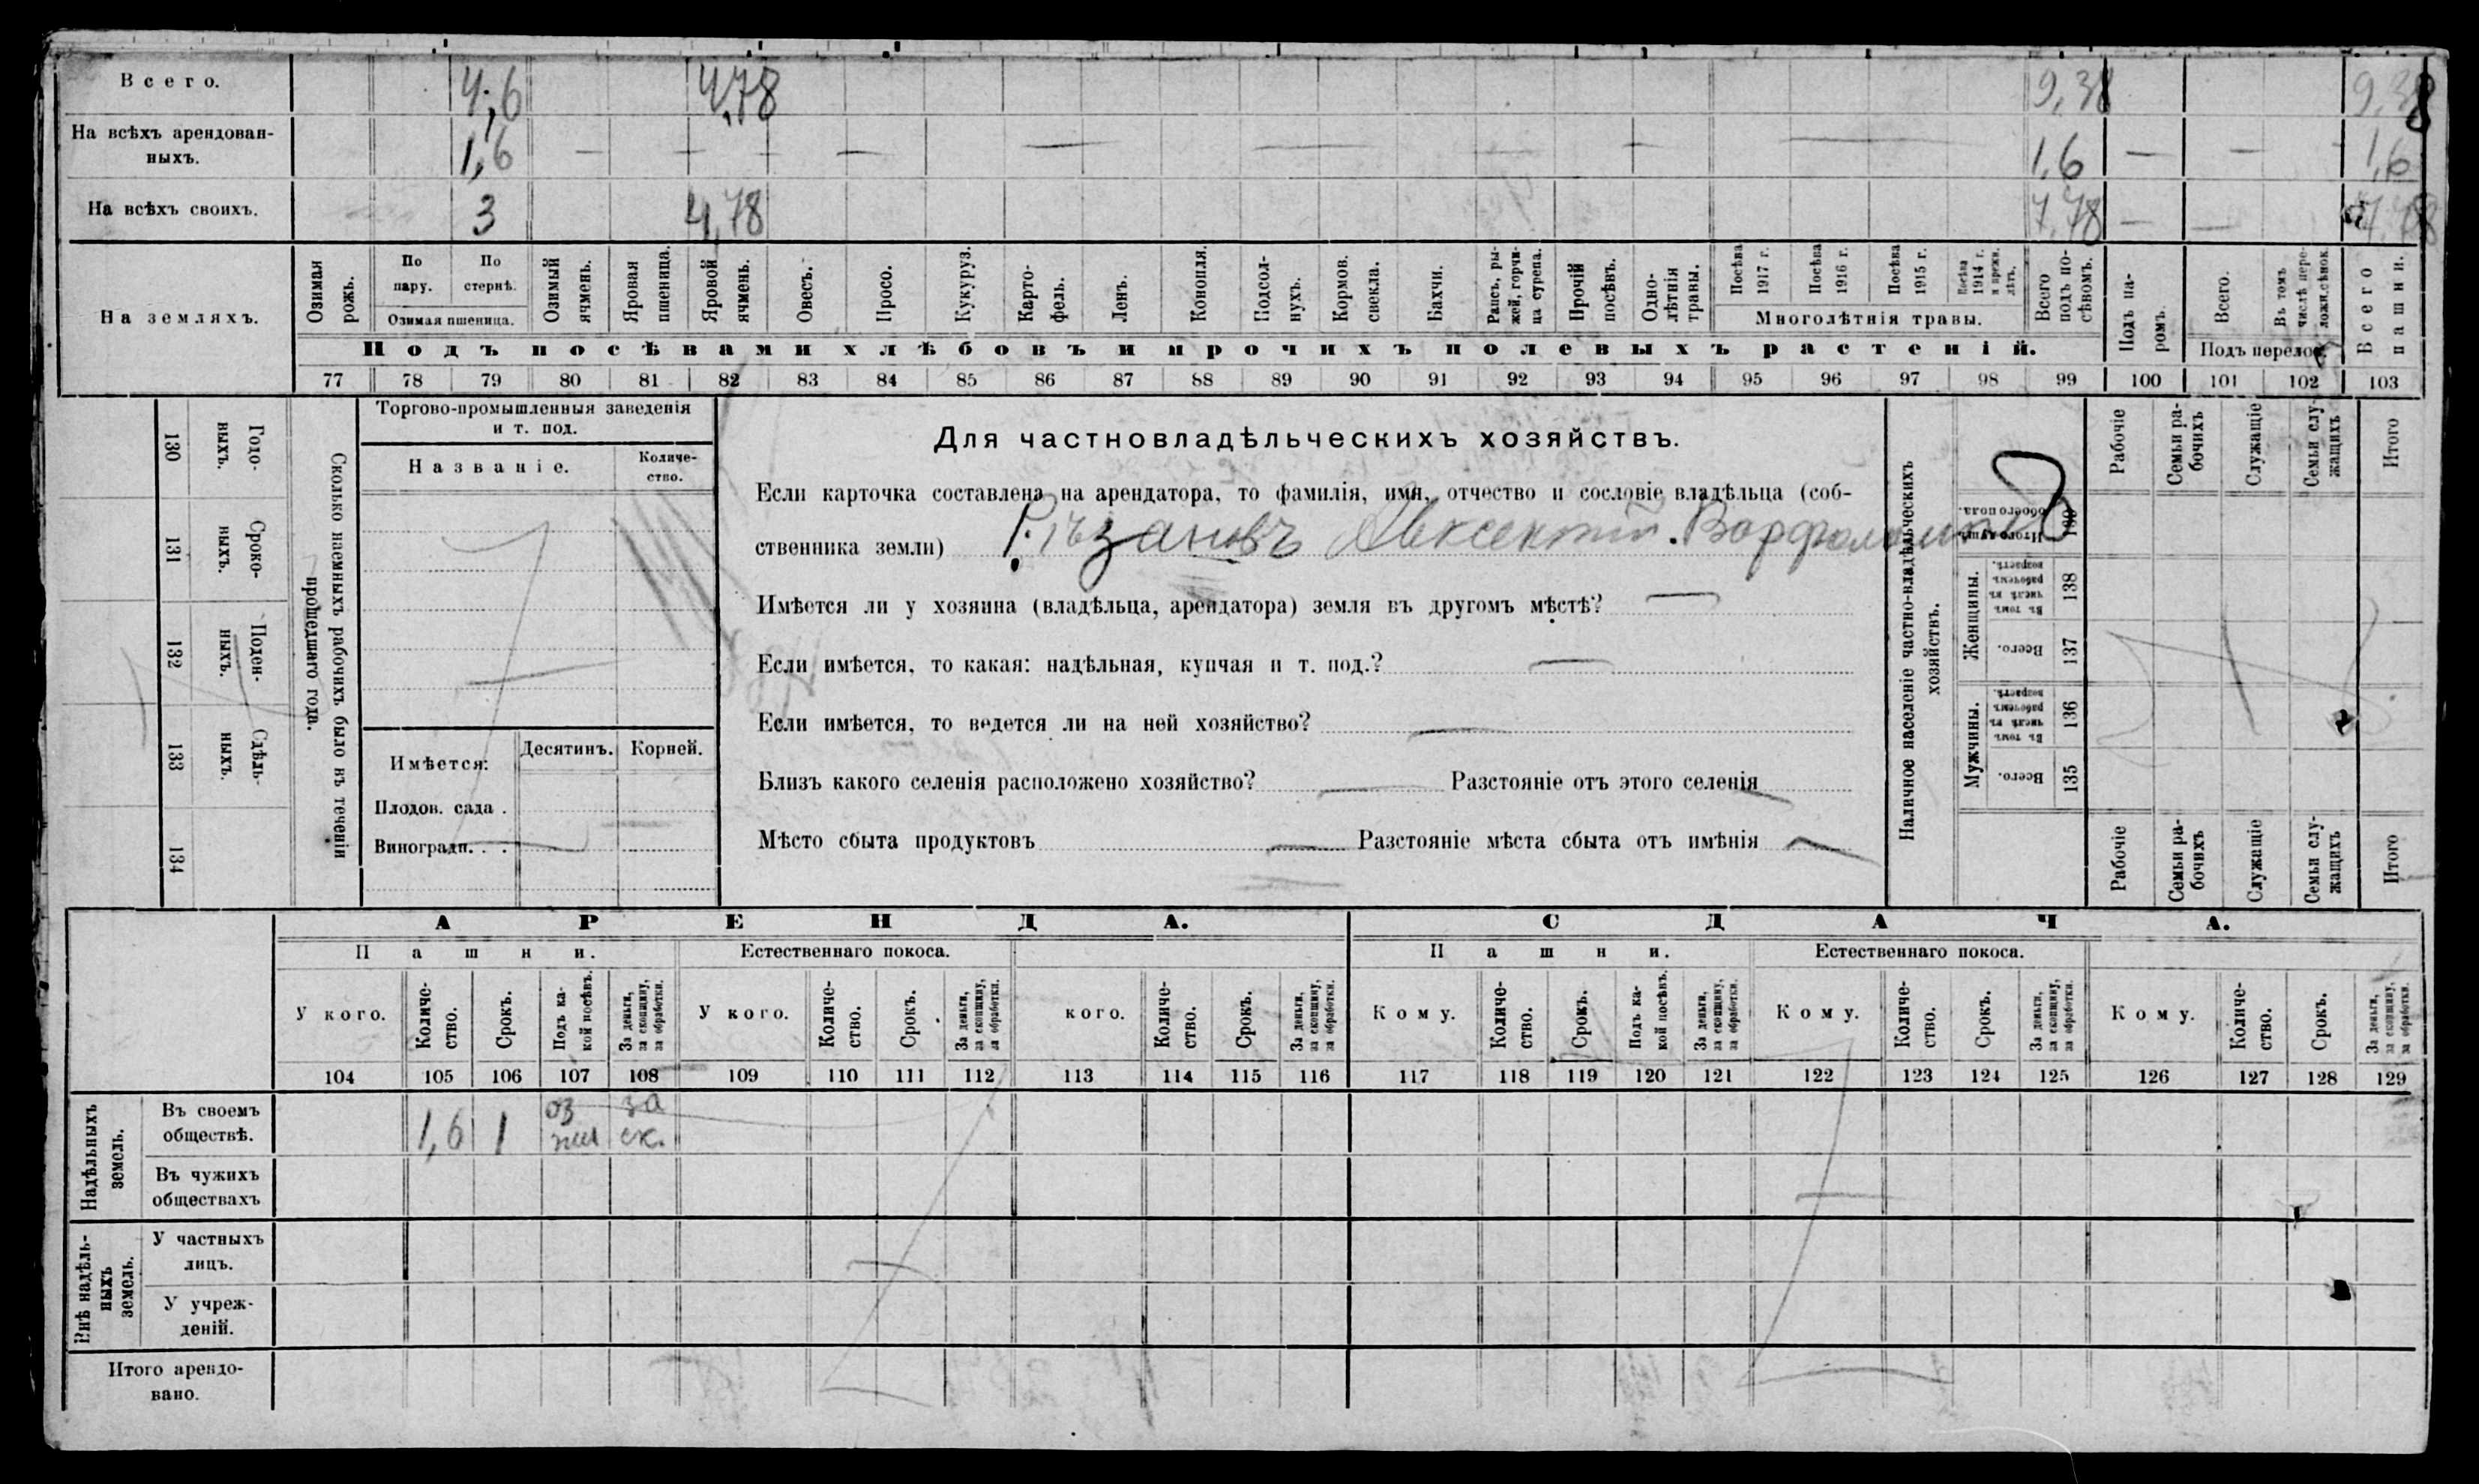 Всего. 4,6 4,78 9,38 9,38
На всѣхъ арендован-
ныхъ. 1,6 — — — — — — — — — 1,6 — — - 1,6
На всѣхъ своихъ. 3 4,78 7,78 — — 7,78
На земляхъ.
Озимая рожь.
По пару.
По стернѣ.
Озимая пшеница.
Озимый ячмень.
Яровая пшеница.
Яровой ячмень.
Овесъ.
Просо.
Кукуруз.
Карто-
фель.
Ленъ.
Конопля.
Подсол-
нухъ.
Кормов. свекла.
Бахчи.
Рапсъ, ры-
жей, горчи-
ца сурепа.
Прочій посѣвъ.
Одно-
лѣтнія травы.
Посѣва 1917 г.
Посѣва 1916 г.
Посѣва 1915 г.
Посѣва 1914 г. и прежн. лѣтъ.
Многолѣтнія травы.
Всего подъ по-
сѣвомъ.
Подъ па-
ромъ.
Всего.
Въ томъ числѣ пере-
Подъ перело
Всего пашни.
Подъ посѣвами хлѣбовъ и прочихъ полевыхъ растеній.
77 78 79 80 81 82 83 84 85 86 87 88 89 90 91 92 93 94 95 96 97 98 99 100 101 102 103
Годо-
ныхъ.
130
Сроко-
ныхъ.
131
Поден-
ныхъ.
132
Сдѣль-
ныхъ.
133
134
Сколько наемныхъ рабочихъ было въ теченіи
прошедшаго года.
Торгово-промышленныя заведенія
и т. под.
Названіе.
Количе-
ство.
Имѣется:
Десятинъ. Корней.
Плодов. сада .
Виноградн. . .
Для частновладѣльческихъ хозяйствъ.
Если карточка составлена на арендатора, то фамилія, имя, отчество и сословіе владѣльца (соб-
ственника земли)
Имѣется ли у хозяина (владѣльца, арендатора) земля въ другомъ мѣстѣ? —
Если имѣется, то какая: надѣльная, купчая и т. под.? —
Если имѣется, то ведется ли на ней хозяйство? —
Близъ какого селенія расположено хозяйство? — Разстояніе отъ этого селенія —
Мѣсто сбыта продуктовъ — Разстояніе мѣста сбыта отъ имѣнія —
Наличное населеніе частно-владѣльческихъ
хозяйствъ.
обоего пола.
Женщины.
Въ томъ числѣ въ рабочемъ возрастѣ.
138
Всего.
137
Мужчины.
Въ томъ числѣ въ рабочемъ возрастѣ.
136
Всего.
135
Рабочіе
Семьи ра-
бочихъ
Служащіе
Семьи слу-
жащихъ
Итого
Рабочіе
Семьи ра-
бочихъ
Служащіе
Семьи слу-
жащихъ
Итого
АРЕНДА. СДАЧА.
Пашни. Естественнаго покоса. Пашни. Естественнаго покоса.
У кого.
Количе-
ство.
Срокъ.
Подъ ка-
кой посѣвъ.
За деньги, за скопщину, за обработки.
У кого.
Количе-
ство.
Срокъ.
За деньги, за скопщину, за обработки.
кого.
Количе-
ство.
Срокъ.
За деньги, за скопщину, за обработки.
Кому.
Количе-
ство.
Срокъ.
Подъ ка-
кой посѣвъ.
За деньги, за скопщину, за обработки.
Кому.
Количе-
ство.
Срокъ.
За деньги, за скопщину, за обработки.
Кому.
Количе-
ство.
Срокъ.
За деньги, за скопщину, за обработки.
104 105 106 107 108 109 110 111 112 113 114 115 116 117 118 119 120 121 122 123 124 125 126 127 128 129
Надѣльныхъ
земель.
Въ своемъ
обществѣ. 1,6 1 оз за
ск.
Въ чужихъ
обществахъ
надѣль-
ныхъ
земель.
У частныхъ
лицъ.
У учреж-
деній.
Итого арендо-
вано.